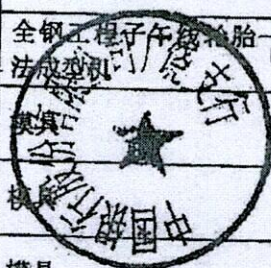 全钢工程子午线轮胎
法成型机
模具
模具
模具
中国银行股份有限公司广饶支行